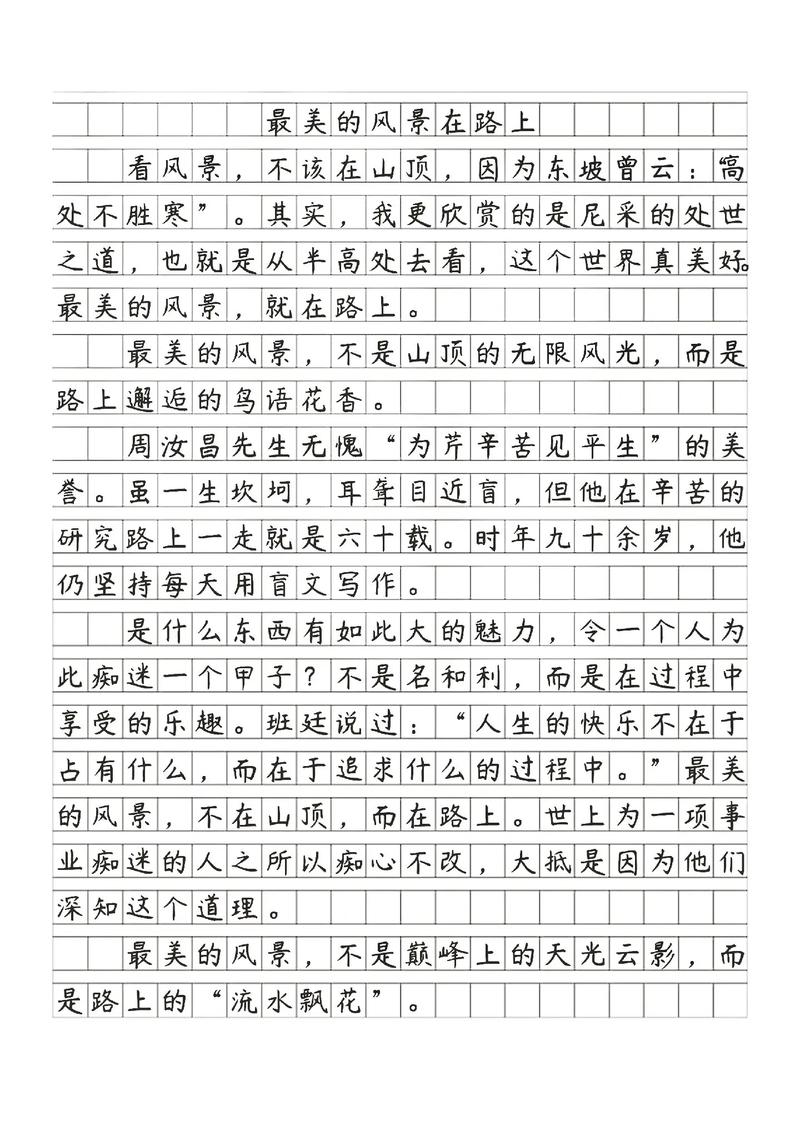 最美的风景在路上
看风景，不该在山顶，因为东坡曾云：“高
处不胜寒”。其实，我更欣赏的是尼采的处世
之道，也就是从半高处去看，这个世界真美好。
最美的风景，就在路上。
最美的风景，不是山顶的无限风光，而是
路上邂逅的鸟语花香。
周汝昌先生无愧“为芹辛苦见平生”的美
誉。虽一生坎坷，耳聋目近盲，但他在辛苦的
研究路上一走就是六十载。时年九十余岁，他
仍坚持每天用盲文写作。
是什么东西有如此大的魅力，令一个人为
此痴迷一个甲子？不是名和利，而是在过程中
享受的乐趣。班廷说过：“人生的快乐不在于
占有什么，而在于追求什么的过程中。”最美
的风景，不在山顶，而在路上。世上为一项事
业痴迷的人之所以痴心不改，大抵是因为他们
深知这个道理。
最美的风景，不是巅峰上的天光云影，而
是路上的“流水飘花”。